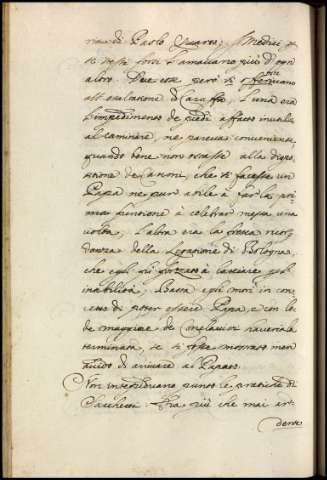 ria di Paolo Quarto; i Medici
si de più forti l'amavano più d'ogni
altro. Due cose però si opponevano
all'esaltazione di Caraffa, l'una era
l'impedimento de piedi affatto invalidi
al caminare, ne pareva conveniente,
quando bene non ostasse alla dispo
sitione de Canoni, che si facesse un
Papa ne pur abile à far la pri
ma funtione à celebrar messa una
volta, l'altra era la fresca ricor
danza della Legatione di Bologna,
che egli fù forzato à lasciare per
inabilità. Basta egli morì in con
cetto di poter essere Papa, e con lo
de maggiore de Conclavisti
terminata, se si fosse mostrato men
avido di arrivare al Papato.
Non intepidivano punto le pratiche di
Sacchetti. Era più che mai ar-
dente